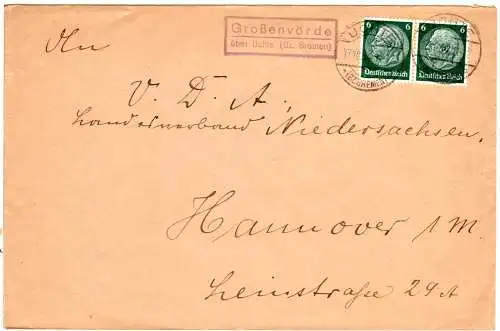 Großenvörde
über Uchte (Bz. Bremen)
6 6
Deutsches Reich Deutsches Reich
(BZ. BREMEN)
An
V. D. A.,
Landesverband Niedersachsen.
Hannover 1 M
Leinstraße 29A